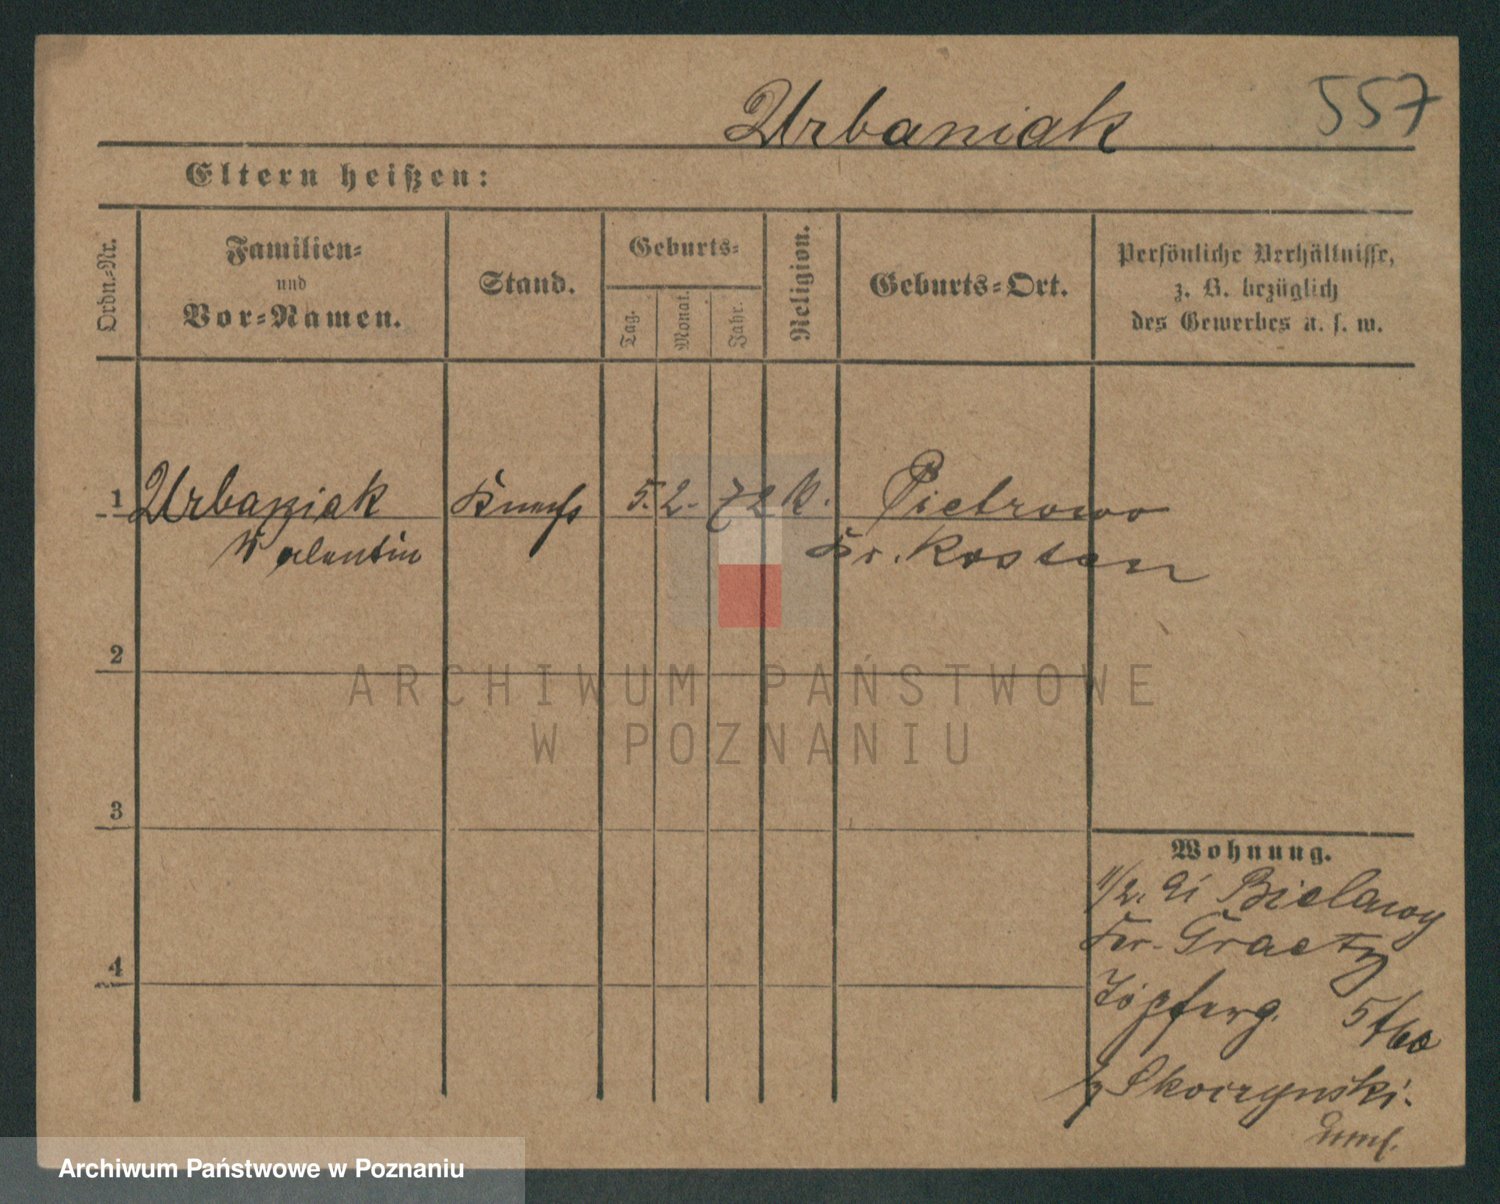 Urbaniak 557
Eltern heißen:
Ordn.-Nr.
Familien-
und
Vor-Namen.
Stand.
Geburts-
Tag.
Monat.
Jahr.
Religion.
Geburts-Ort.
Persönliche Verhältnisse,
z. B. bezüglich
des Gewerbes u. s. w.
1 Urbaniak Knecht 5. 2. 72 K. Pietrowo
Valentin Kr. Kosten
2
ARCHIWUM PAŃSTWOWE
W POZNANIU
3
Wohnung.
1/2. 91 Bielawy
Kr. Graetz
4
Töpferg.
Skoczynski.
Archiwum Państwowe w Poznaniu